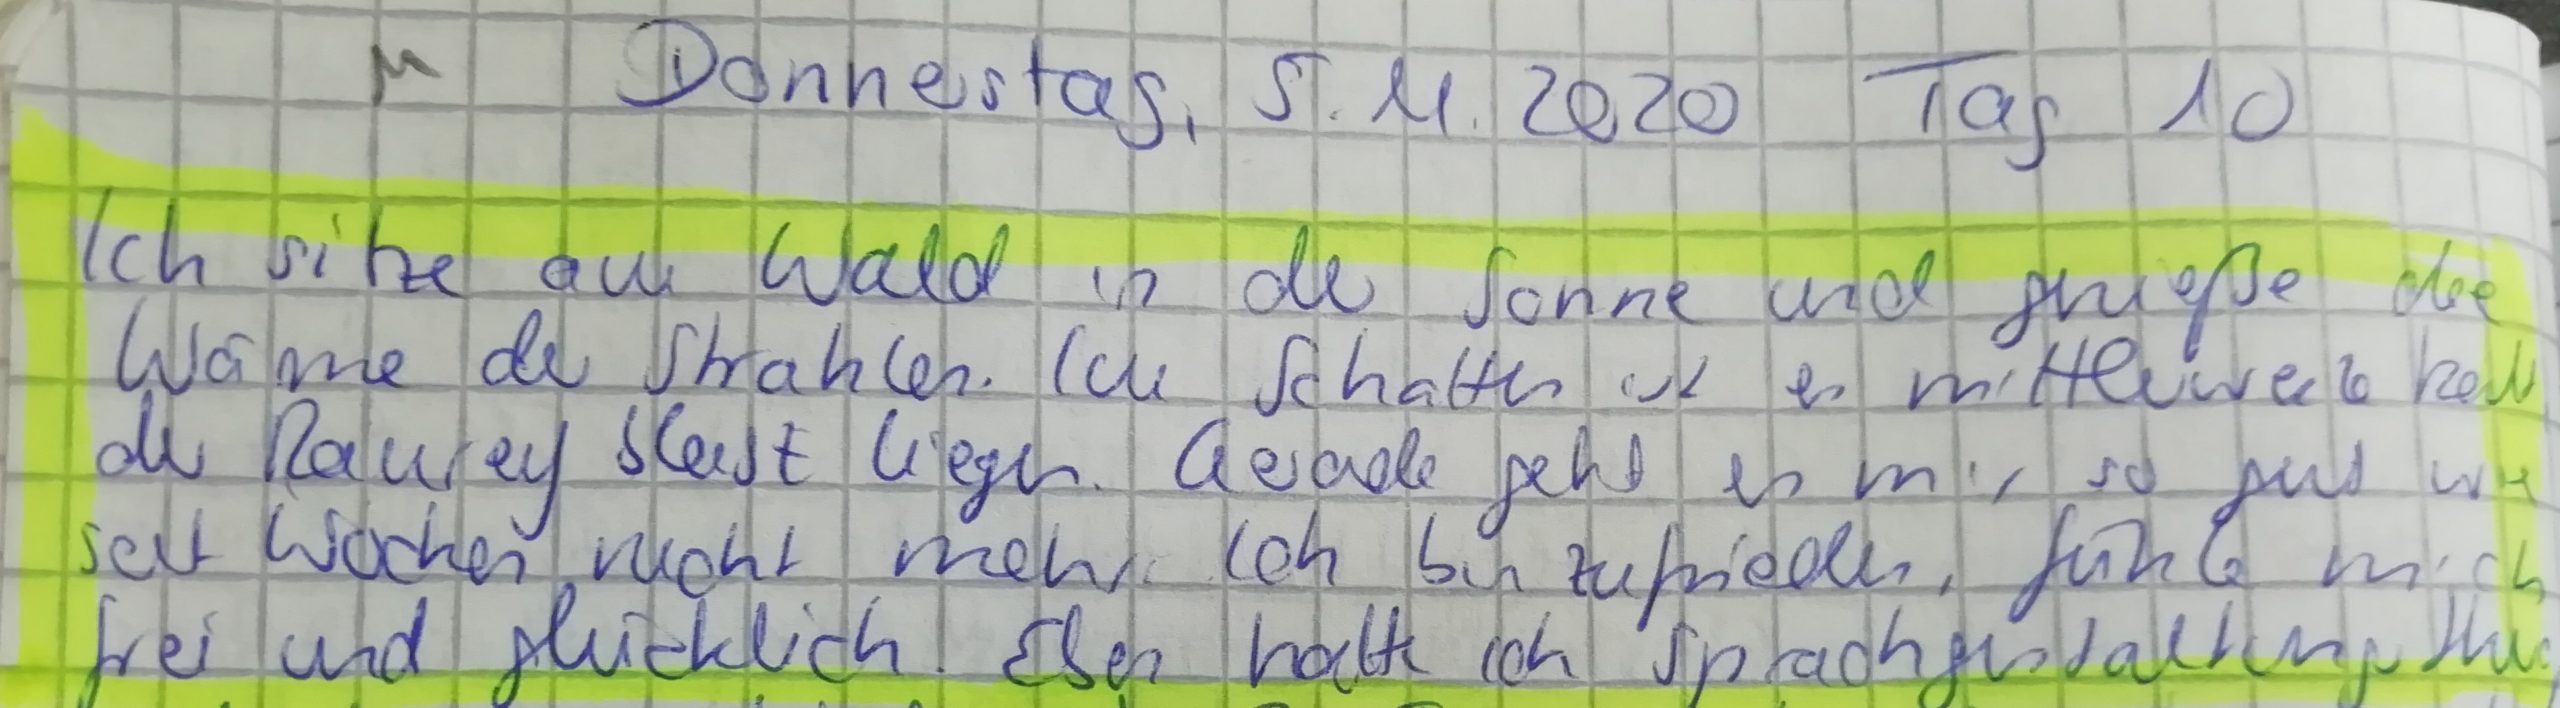 Donnerstag, 5.11.2020 Tag 10
Ich sitze am Wald in der Sonne und genieße die
Wärme der Strahlen. Im Schatten ist es mittlerweile kalt,
der Raureif bleibt liegen. Gerade geht es mir so gut wie
seit Wochen nicht mehr. Ich bin zufrieden, fühle mich
frei und glücklich. Eben hatte ich Sprachgestaltung